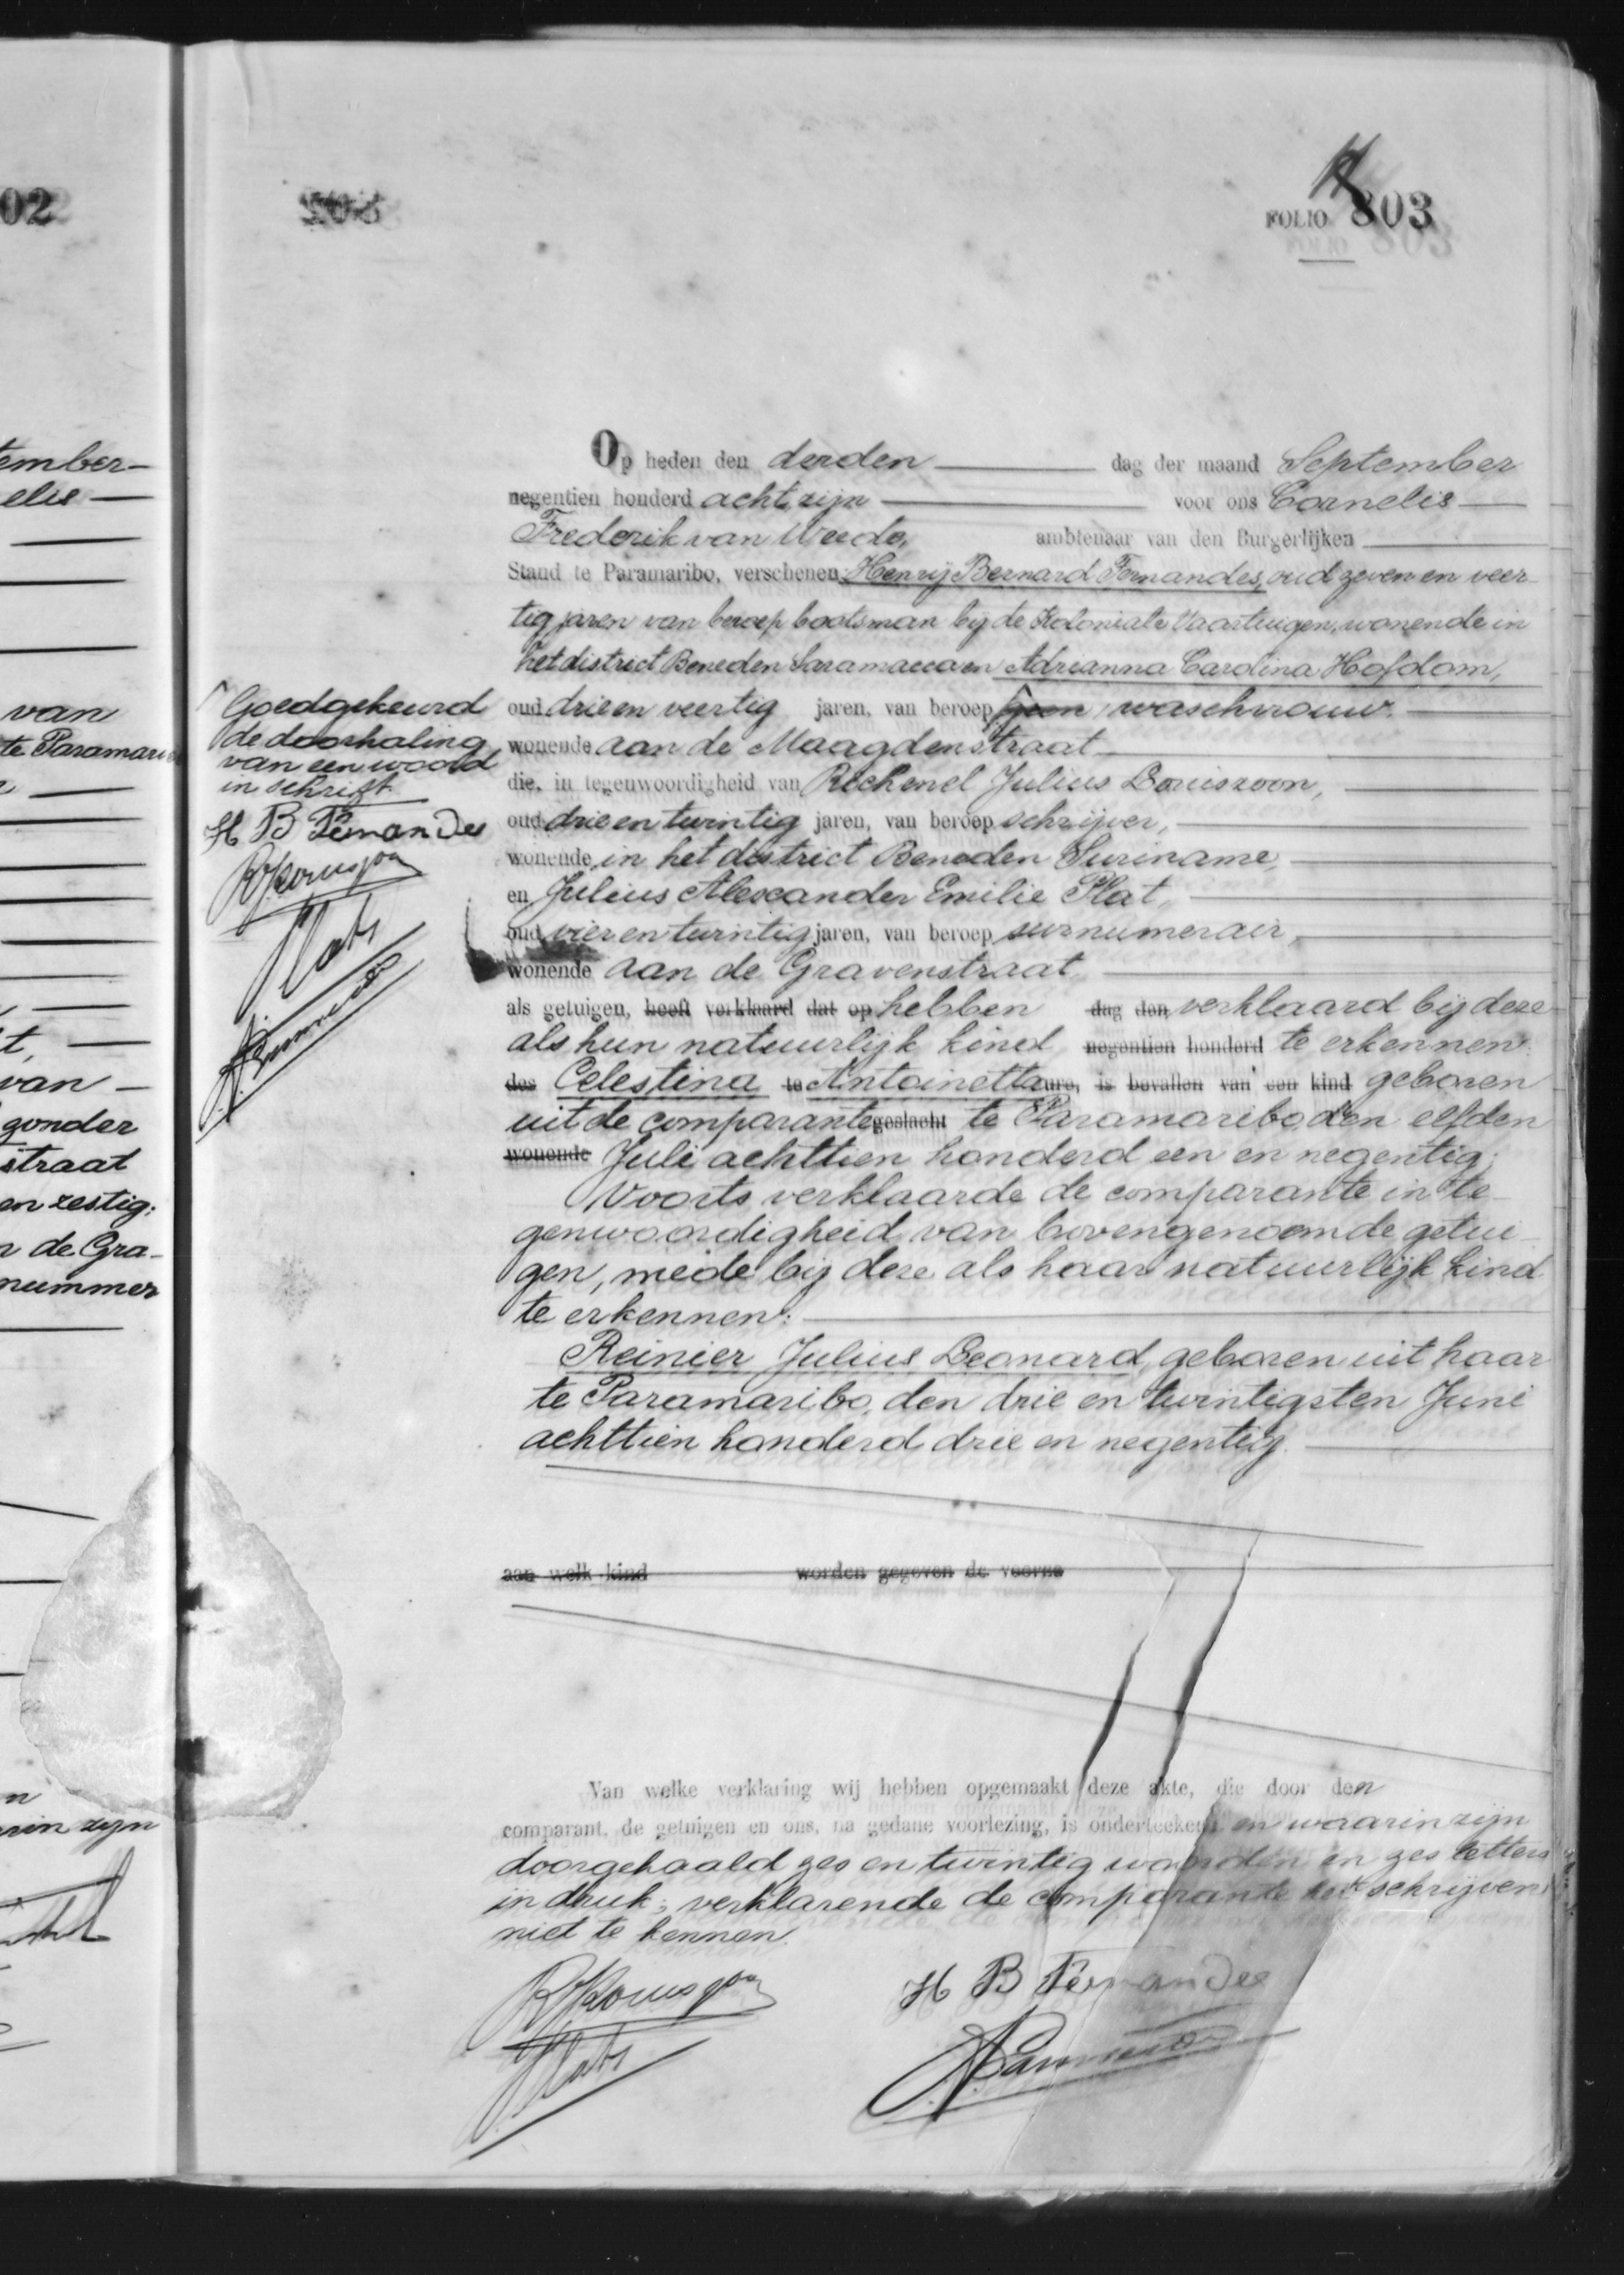 02
FOLIO 803
ember
elis
van
te Paramari
t,
van
gonder
straat
en zestig;
de Gra-
nummer
n
rin zijn
Goedgekeurd
de doorhaling
van een woord
in schrift.
H B Fernandes
Op heden den derden dag der maand September
negentien honderd acht, zijn voor ons Cornelis
Frederik van Weede, ambtenaar van den Burgerlijken
Stand te Paramaribo, verschenen: Henrij Bernard Fernandes, oud zeven en veer-
tig jaren van beroep bootsman bij de Koloniale Vaartuigen, wonende in
het district Beneden Saramacca en Adrianna Carolina Hofdom,
oud drie en veertig jaren, van beroep geen, waschvrouw.
wonende aan de Maagdenstraat
die, in tegenwoordigheid van Rechenel Julius Louiszoon,
oud drie en twintig jaren, van beroep schrijver,
wonende in het district Beneden Suriname,
en Julius Alexander Emilie Plat,
oud vier en twintig jaren, van beroep surnumerair,
wonende aan de Gravenstraat
als getuigen, heeft verklaard dat op hebben dag den verklaard bij deze
als hun natuurlijk kind negentien honderd te erkennen:
des Celestina te Antoinetta ure, is bevallen van een kind geboren
uit de comparante geslacht te Paramaribo, den elfden
wonende Juli achttien honderd een en negentig;
Voorts verklaarde de comparante in te-
genwoordigheid van bovengenoemde getui-
gen, mede bij deze als haar natuurlijk kind
te erkennen:
Reinier Julius Leonard, geboren uit haar
te Paramaribo, den drie en twintigsten Juni
achttien honderd drie en negentig.
aan welk kind worden gegeven de voorna
Van welke verklaring wij hebben opgemaakt deze akte, die door den
comparant, de getuigen en ons, na gedane voorlezing, is onderteekend en waarin zijn
doorgehaald zes en twintig woorden en zes letters
in druk; verklarende de comparante het schrijven
niet te kennen.
H B Fernandes